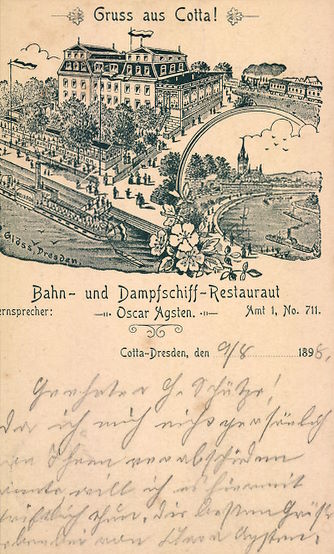 Gruss aus Cotta!
Gläss, Dresden.
Bahn- und Dampfschiff-Restauraut
ernsprecher: Oscar Agsten. Amt 1, No. 711.
Cotta-Dresden, den 9/8 1898.
Geehrter H. Schütze!
da ich mich nicht persönlich
von Ihnen verabschieden
konnte will ich es hiermit
schriftlich thun. Die besten Grüße
von Clara Agsten.